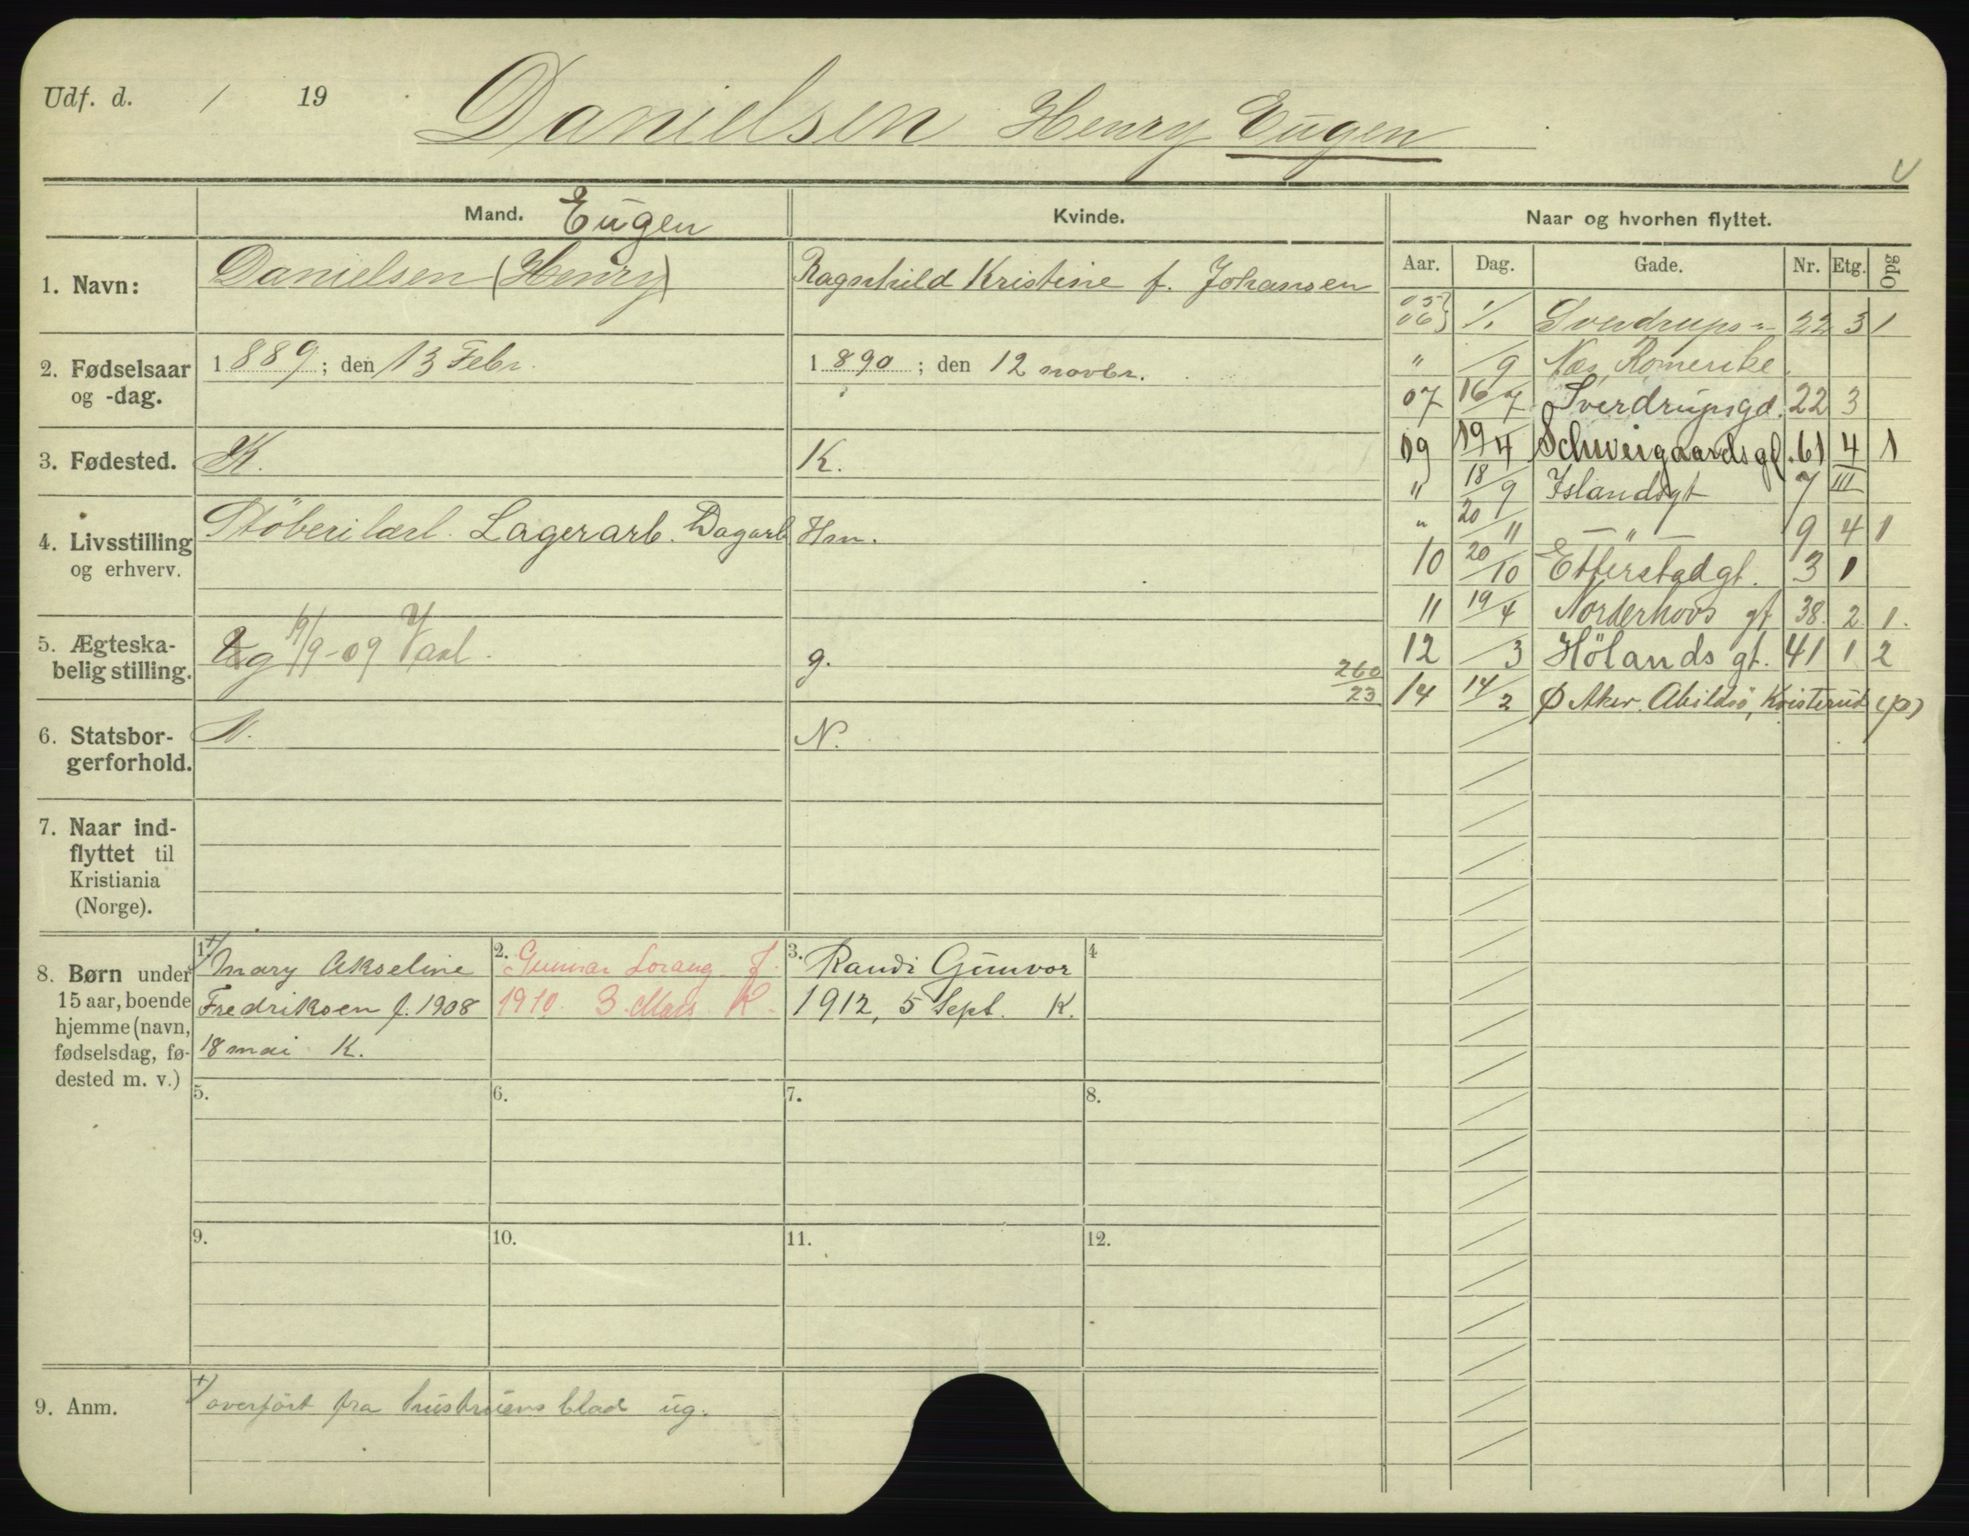 Udf. d. / 19
Danielsen Henry Eugen
Mand. Eugen
Kvinde.
Naar og hvorhen flyttet.
Aar. Dag. Gade. Nr. Etg. Opg
1. Navn: Danielsen (Henry)
Ragnhild Kristine f. Johansen
05 06 1/1 Sverdrups 22 3 1
2. Fødselsaar og -dag. 1889; den 13 Febr.
1890; den 12 novbr.
" /9 Næs, Romerike.
07 16/7 Sverdrupsgd. 22 3
3. Fødested. K.
K.
09 19/4 Schweigaardsgt. 61 4 1
" 18/9 Islandsgt 7 III
4. Livsstilling og erhverv. Støberilærl. Lagerarb. Dagarb
Hm.
" 20/11 — " — 9 4 1
10 20/10 Etterstadgt. 3 1
11 19/4 Norderhovs gt 38. 2. 1.
5. Ægteska-
belig stilling. g 19/9-09
g.
260
23
12 /3 Hölands gt. 41 1 2
14 14/2 Ø Aker. Abildsö, Kvisterud (p)
6. Statsbor-
gerforhold. N.
N.
7. Naar ind-
flyttet til
Kristiania
(Norge).
8. Børn under
15 aar, boende
hjemme (navn,
fødselsdag, fø-
dested m. v.)
1. +/ Mary Akseline
Fredriksen f. 1908
18 mai K.
2. Gunnar Lorang f.
1910. 3 Mars K.
3. Randi Gunvor
1912, 5 Sept. K.
4
5. 6. 7. 8.
9. 10. 11. 12.
9. Anm. +/ overført fra hustruens blad ug.